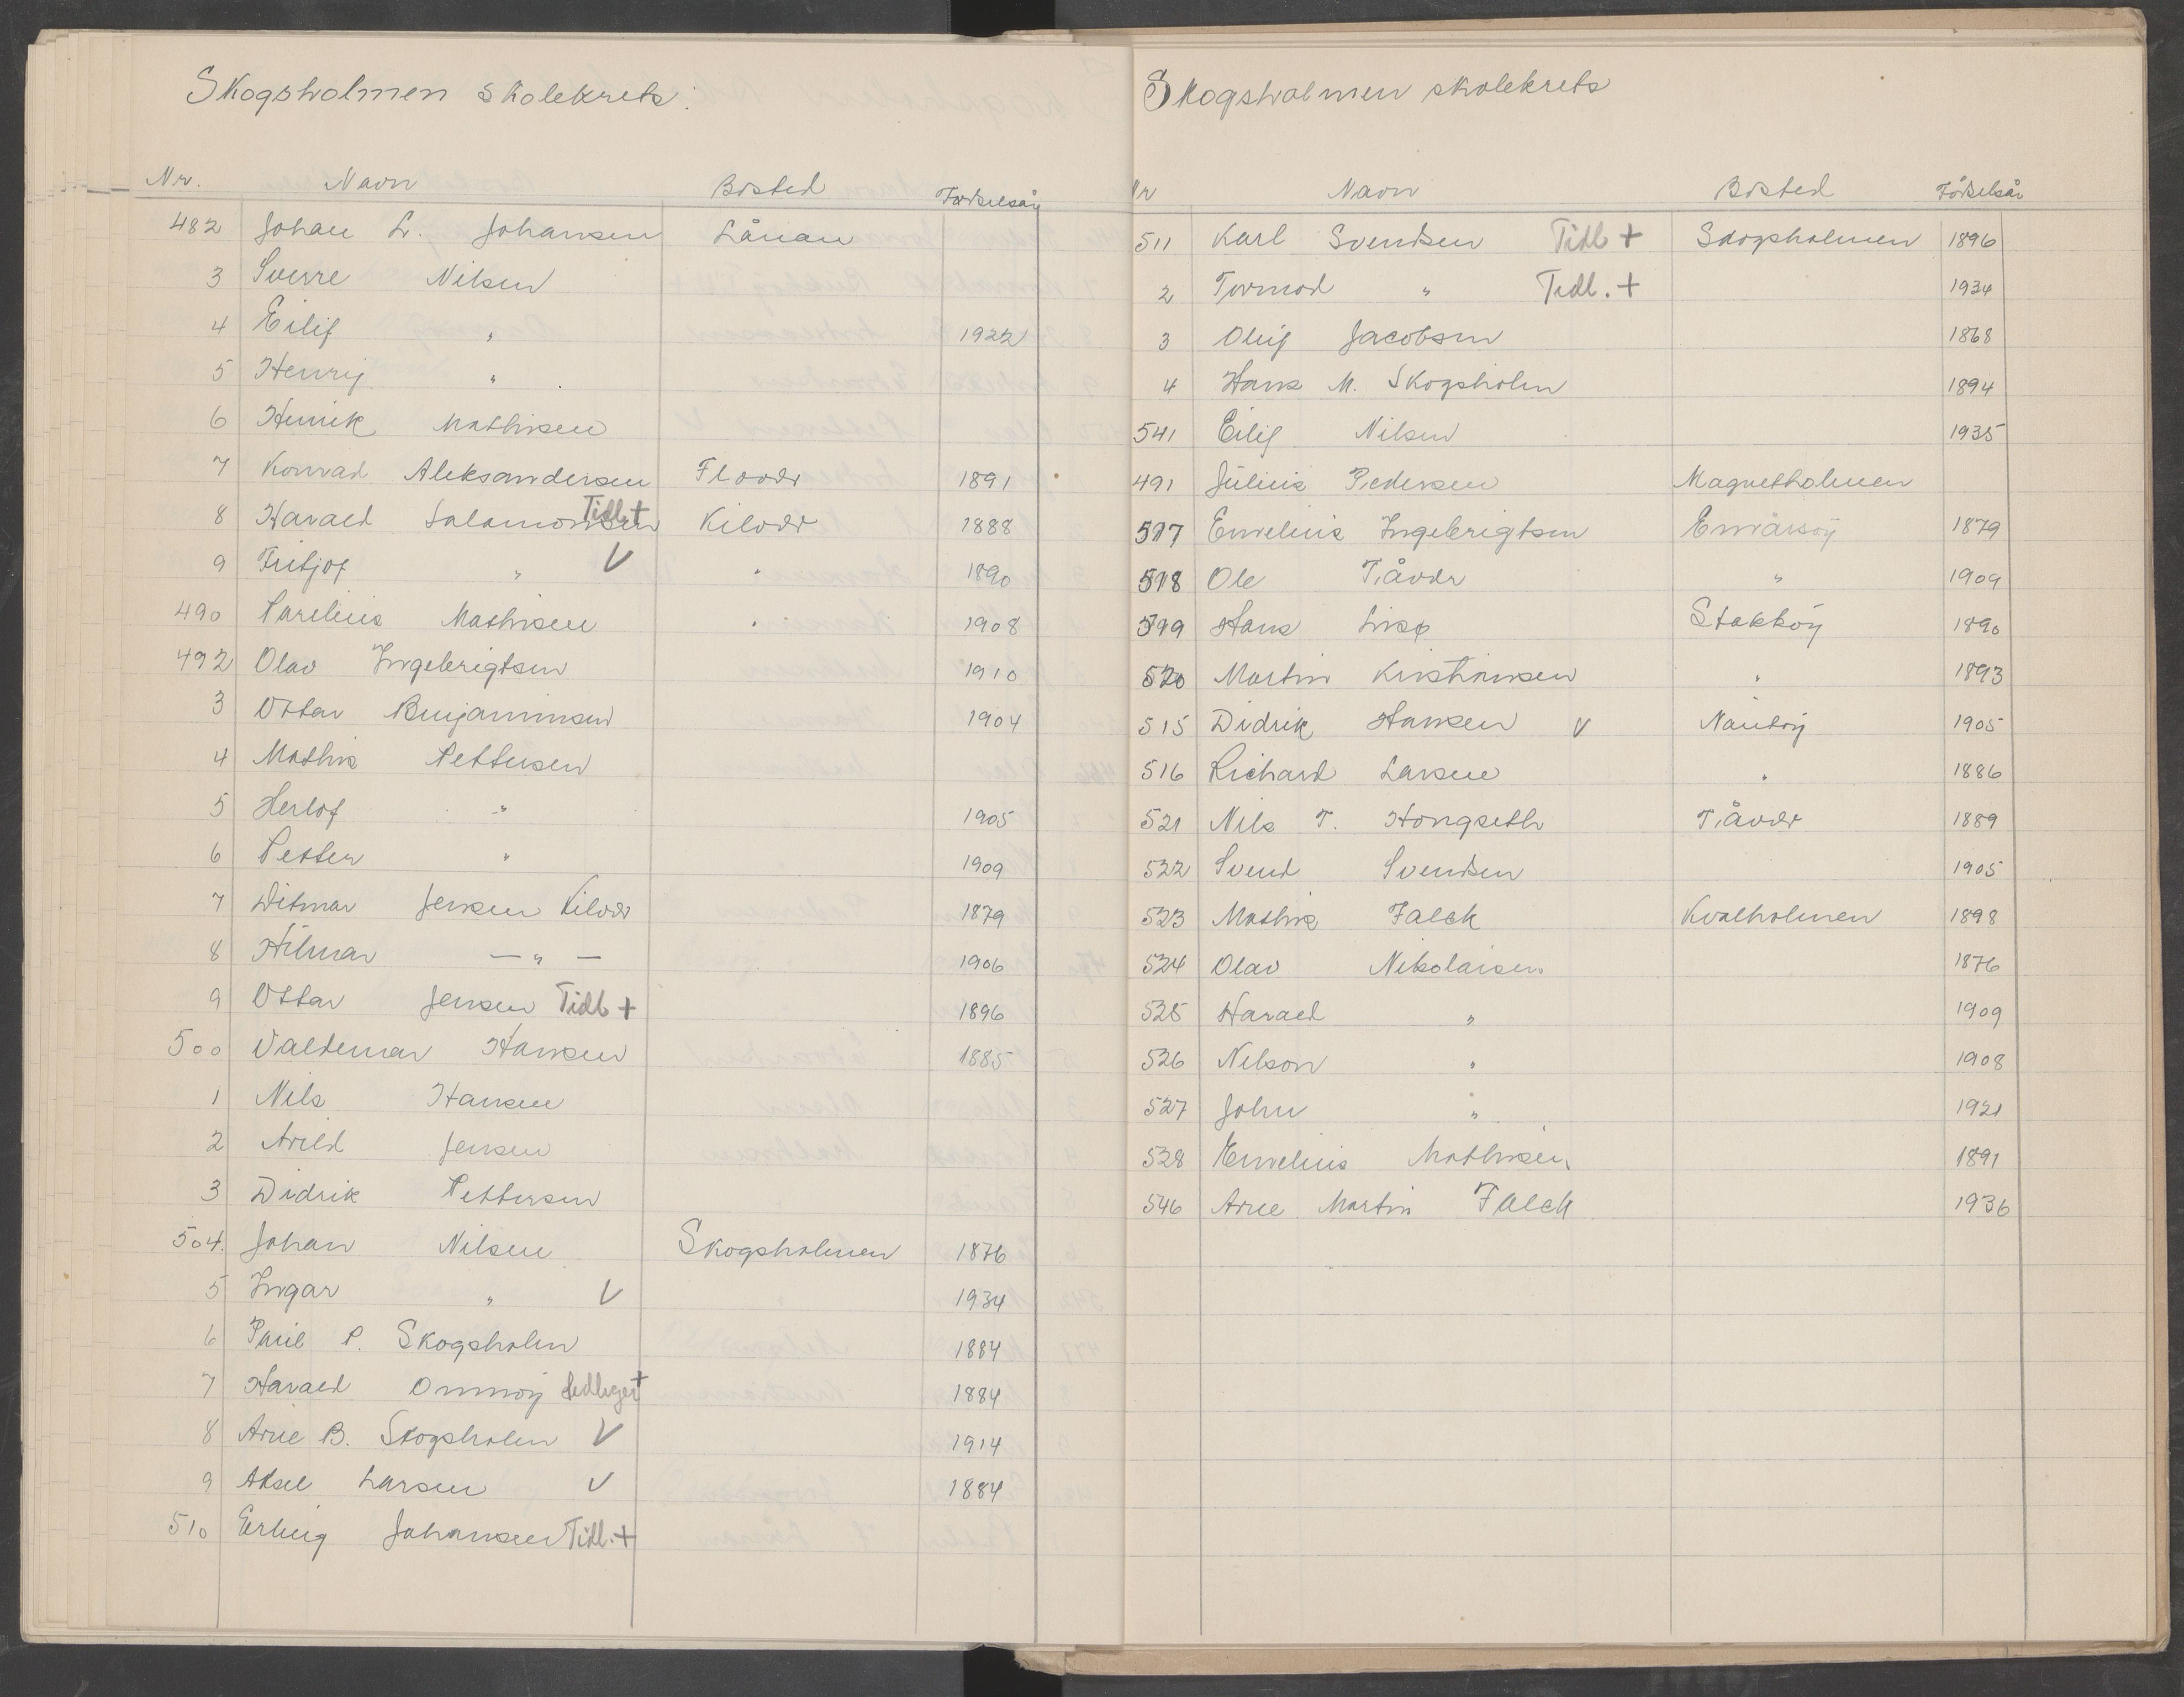 Skogsholmen skolekrets.
Nr. Navn Bosted Fødselsår
482 Johan L. Johansen Lånan
3 Sverre Nilsen
4 Eilif " 1922
5 Henrij "
6 Henrik Mathisen
7 Konrad Aleksandersen Flovær 1891
8 Harald Salamonsen Tidl + Kilvær 1888
9 Fritjof " V " 1890
490 Parelius Mathisen " 1908
492 Olav Ingebrigtsen 1910
3 Ottar Benjaminsen 1904
4 Mathis Pettersen
5 Herlof " 1905
6 Petter " 1909
7 Ditmar Jensen Kilvær 1879
8 Hilmar — " — 1906
9 Ottar Jensen Tidl + 1896
500 Valdemar Hansen 1885
1 Nils Hansen
2 Arild Jensen
3 Didrik Pettersen
504. Johan Nilsen Skogsholmen 1876
5 Ingar " V 1934
6 Paul P. Skogsholm 1884
7 Harald Ommøy + 1884
8 Arne B. Skogsholm V 1914
9 Aksel Larsen V 1884
510 Erling Johansen Tidl. +
Skogsholmen skolekrets
Nr Navn Bosted Fødselsår
511 Karl Svendsen Tidl + Skogsholmen 1896
2 Tormod " Tidl. + 1934
3 Oluf Jacobsen 1868
4 Hans M. Skogsholm 1894
541 Eilif Nilsen 1935
491 Julius Pedersen Magnetholmen
517 Emelius Ingebrigtsen Emårsøy 1879
518 Ole Tiåvær " 1909
519 Hans Lisø Stokkøy 1890
520 Martin Kristiansen " 1893
515 Didrik Hansen V Nautøy 1905
516 Richard Larsen " 1886
521 Nils T. Hongseth Tiåvær 1889
522 Svend Svendsen 1905
523 Mathis Falck Kvalholmen 1898
524 Olav Nikolaisen 1876
525 Harald " 1909
526 Nelson " 1908
527 John " 1921
528 Emelius Mathisen 1891
546 Arne Martin Falck 1936